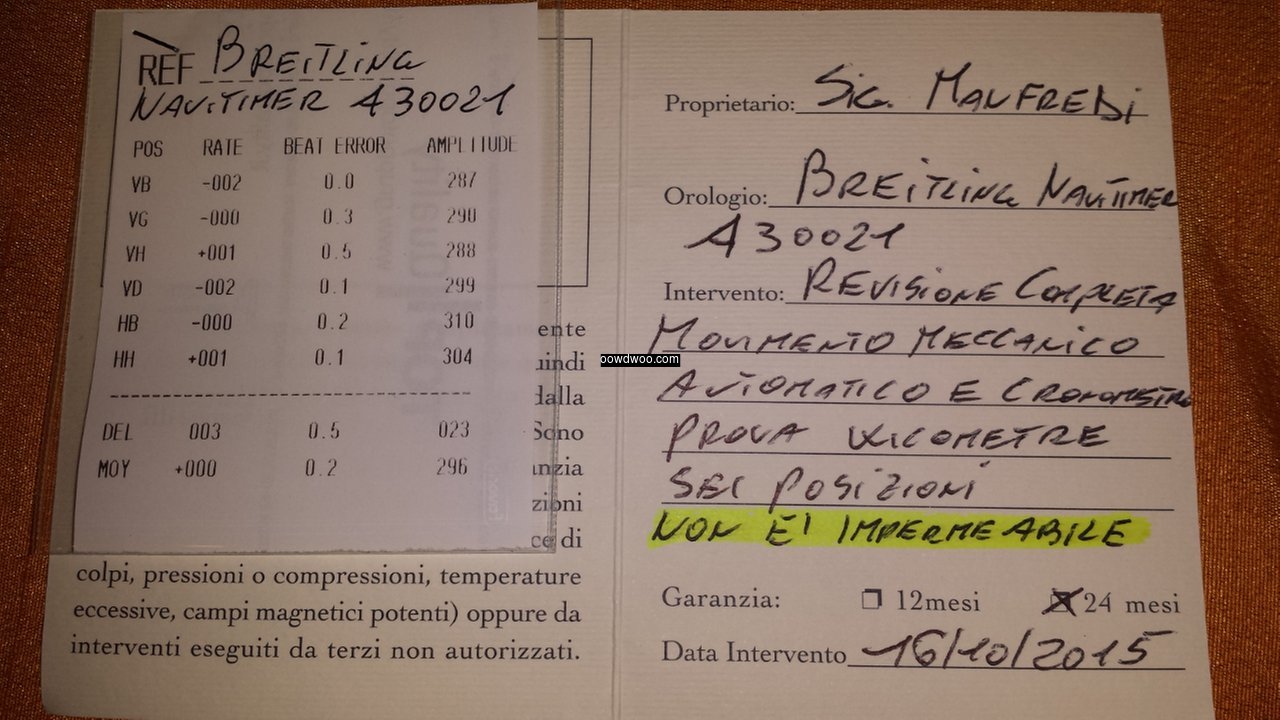 REF BREITLING
NAVITIMER A30021
POS RATE BEAT ERROR AMPLITUDE
VB -002 0.0 287
VG -000 0.3 290
VH +001 0.5 288
VD -002 0.1 299
HB -000 0.2 310
HH +001 0.1 304
DEL 003 0.5 023
MOY +000 0.2 296
ente
uindi
dalla
Sono
anzia
zioni
ce di
colpi, pressioni o compressioni, temperature
eccessive, campi magnetici potenti) oppure da
interventi eseguiti da terzi non autorizzati.
Proprietario: SIG. MANFREDI
Orologio: BREITLING NAVITIMER
A30021
Intervento: REVISIONE COMPLETA
MOVIMENTO MECCANICO
AUTOMATICO E CRONOMETRO
PROVA
SEI POSIZIONI
NON E' IMPERMEABILE
Garanzia: 12mesi 24 mesi
Data Intervento 16/10/2015
powdwoo.com